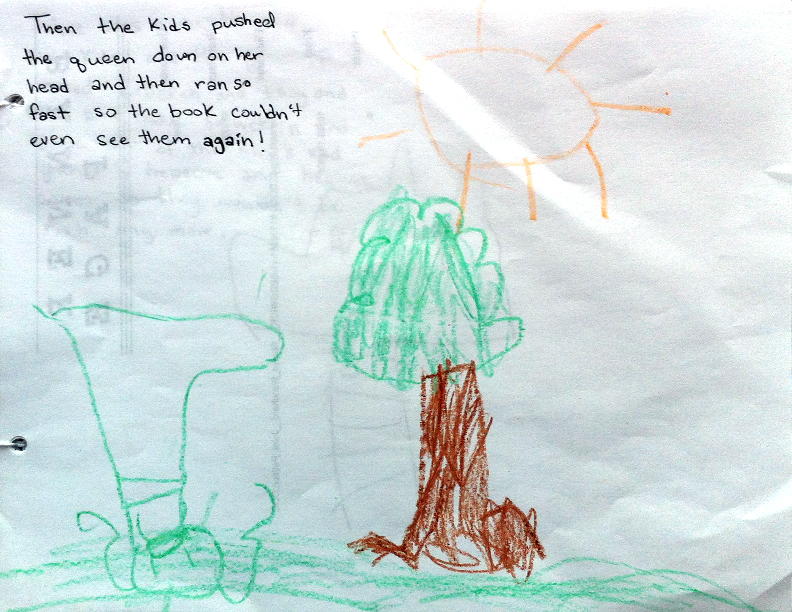 Then the Kids pushed
the queen down on her
head and then ran so
fast so the book couldn't
even see them again!